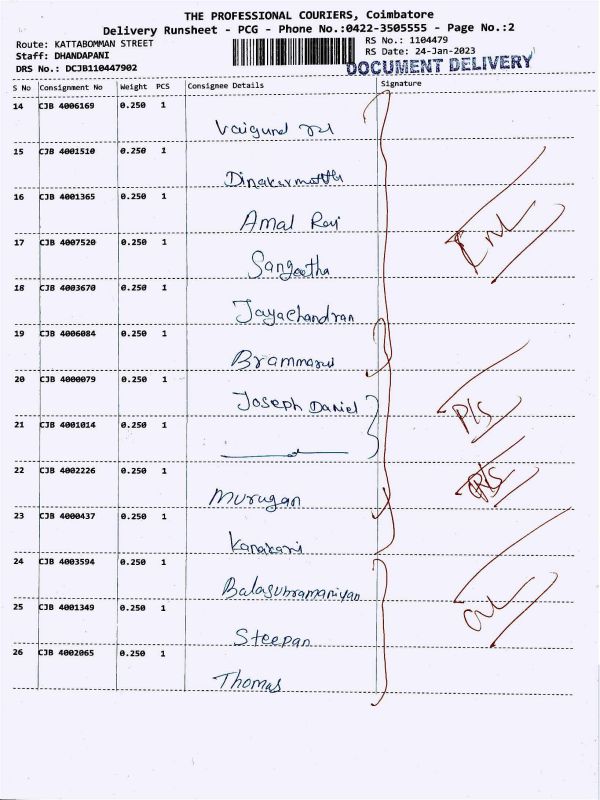 THE PROFESSIONAL COURIERS, Coimbatore
Delivery Runsheet - PCG - Phone No.:0422-3505555 - Page No.:2
Route: KATTABOMMAN STREET
RS No.: 1104479
Staff: DHANDAPANI
RS Date: 24-Jan-2023
DRS No.: DCJB110447902
DOCUMENT DELIVERY
S No Consignment No Weight PCS Consignee Details Signature
14 CJB 4006169 0.250 1
Vaigund
15 CJB 4001510 0.250 1
16 CJB 4001365 0.250 1
Amal Raj
17 CJB 4007520 0.250 1
Sangeetha
18 CJB 4003670 0.250 1
Jayachandran
19 CJB 4006084 0.250 1
20 CJB 4000079 0.250 1
Joseph Daniel
P/S
21 CJB 4001014 0.250 1
22 CJB 4002226 0.250 1
Murugan
23 CJB 4000437 0.250 1
Kanakani
24 CJB 4003594 0.250 1
Balasubramaniyan
25 CJB 4001349 0.250 1
Steepan
26 CJB 4002065 0.250 1
Thomas